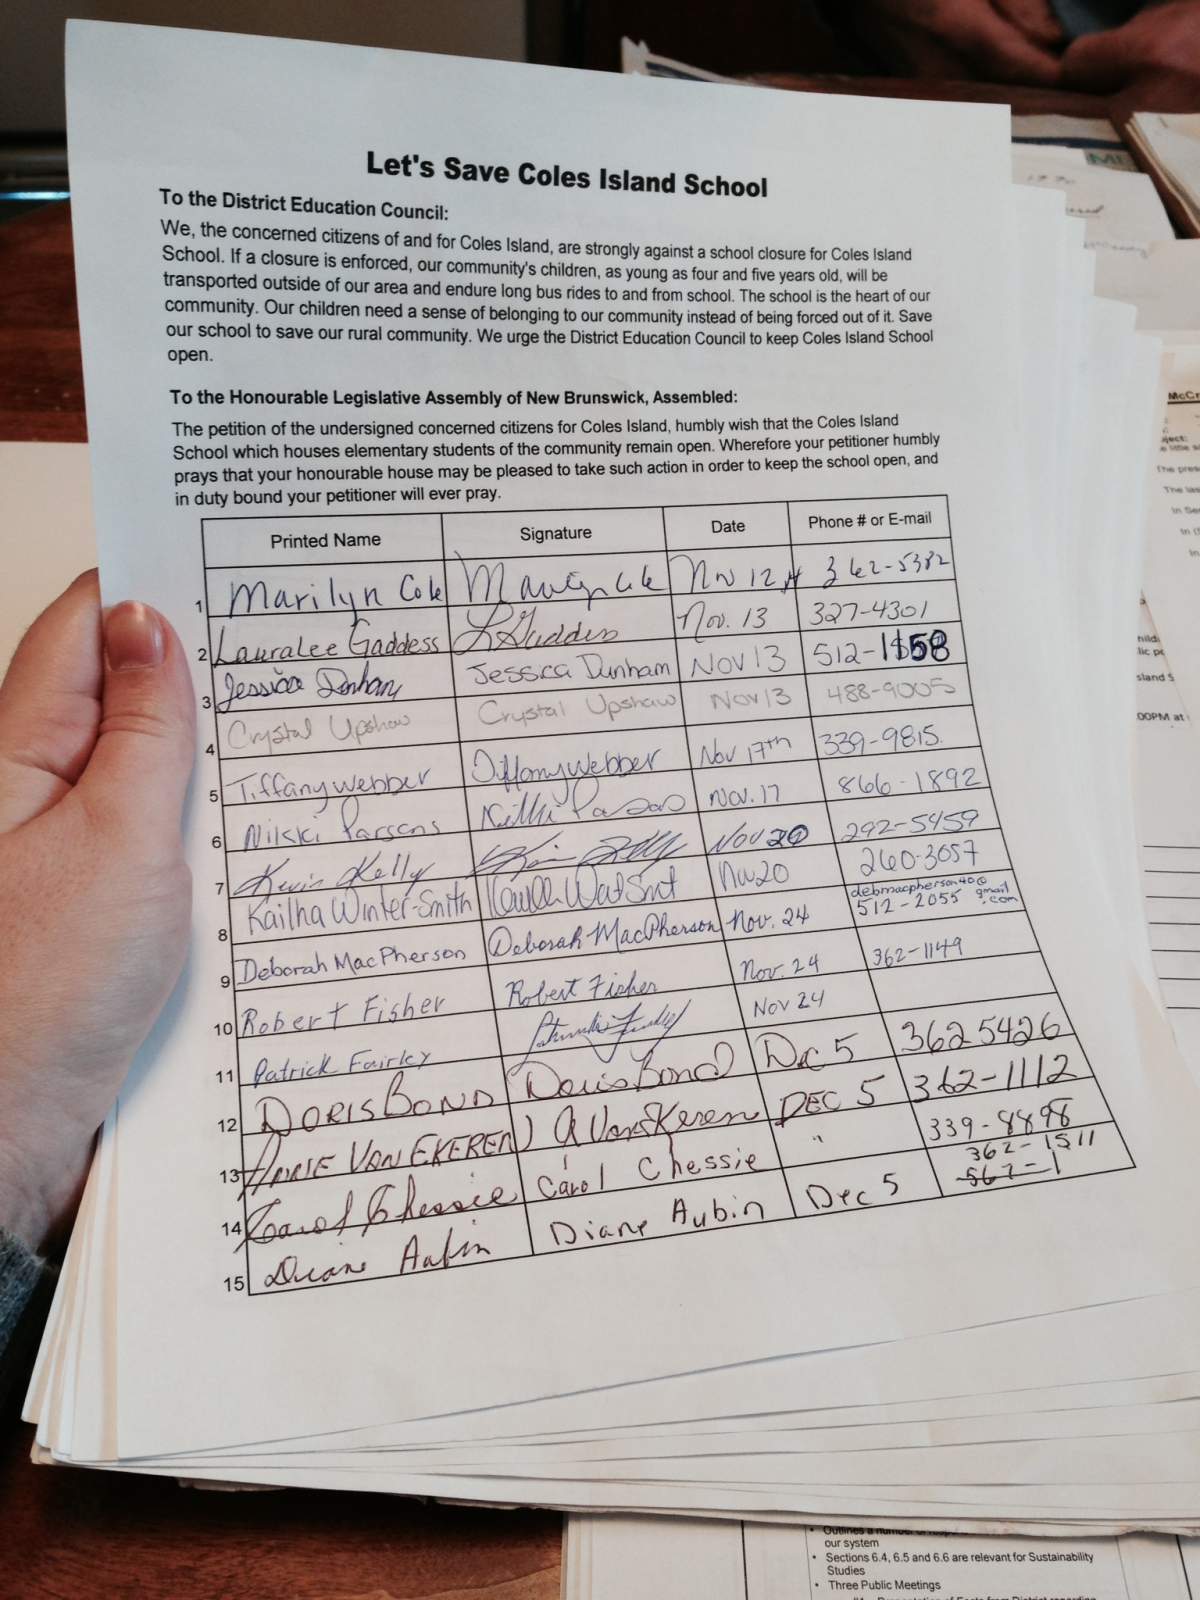 Let's Save Coles Island School
To the District Education Council:
We, the concerned citizens of and for Coles Island, are strongly against a school closure for Coles Island
School. If a closure is enforced, our community's children, as young as four and five years old, will be
transported outside of our area and endure long bus rides to and from school. The school is the heart of our
community. Our children need a sense of belonging to our community instead of being forced out of it. Save
our school to save our rural community. We urge the District Education Council to keep Coles Island School
open.
To the Honourable Legislative Assembly of New Brunswick, Assembled:
The petition of the undersigned concerned citizens for Coles Island, humbly wish that the Coles Island
School which houses elementary students of the community remain open. Wherefore your petitioner humbly
prays that your honourable house may be pleased to take such action in order to keep the school open, and
in duty bound your petitioner will ever pray.
Printed Name Signature Date Phone # or E-mail
1 Marilyn Cole Nov 12 362-5382
2 Lauralee Gaddess L Gaddess Nov. 13 327-4301
3 Jessica Dunham Jessica Dunham Nov 13 512-1158
4 Crystal Upshaw Crystal Upshaw Nov 13 488-9005
5 Tiffany Webber Tiffany Webber Nov 17th 339-9815
6 Nikki Parsons Nikki Parsons Nov. 17 866-1892
7 Kevin Kelly Kevin Kelly Nov 20 292-5459
8 Kailha Winter-Smith Nov 20 260-3057
9 Deborah MacPherson Deborah MacPherson Nov. 24 debmacpherson40@gmail.com
512-2055
10 Robert Fisher Robert Fisher Nov. 24 362-1149
11 Patrick Fairley Nov 24
12 Doris Bond Doris Bond Dec 5 362 5426
13 Anne Van Ekeren A Van Ekeren Dec 5 362-1112
14 Carol Chessie Carol Chessie " 339-8898
15 Diane Aubin Diane Aubin Dec 5 362-1511
567-1
our system
• Sections 6.4, 6.5 and 6.6 are relevant for Sustainability
Studies
• Three Public Meetings